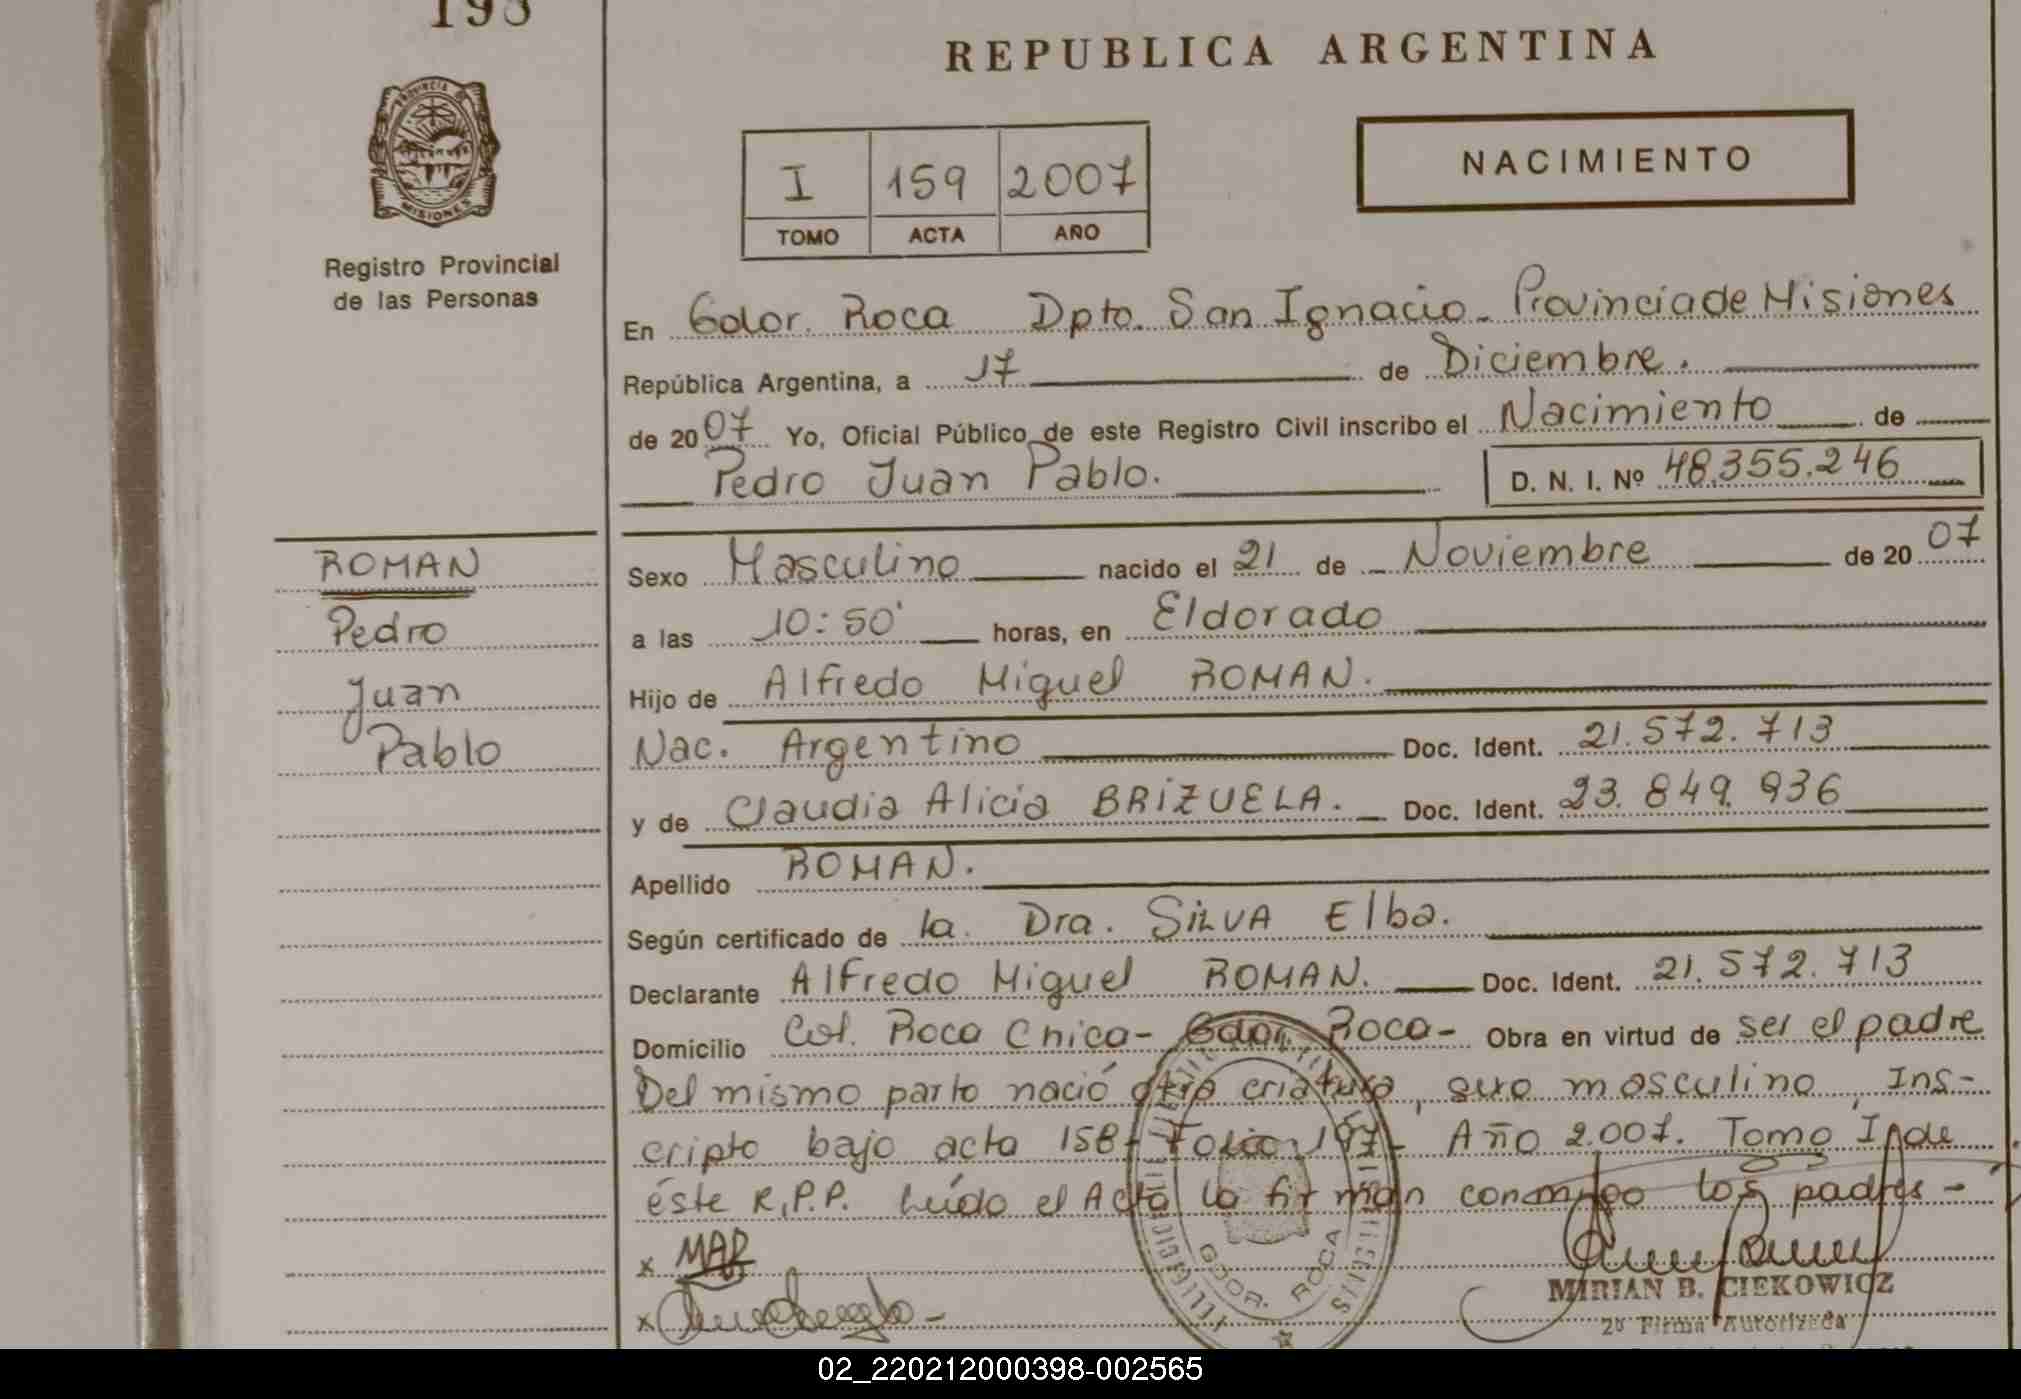 198
REPUBLICA ARGENTINA
PROVINCIA DE
MISIONES
Registro Provincial
de las Personas
I 159 2007
TOMO ACTA AÑO
NACIMIENTO
En Gdor. Roca Dpto. San Ignacio - Provincia de Misiones
República Argentina, a 17 de Diciembre.
de 2007 Yo, Oficial Público de este Registro Civil inscribo el Nacimiento de
Pedro Juan Pablo. D. N. I. Nº 48.355.246
ROMAN
Pedro
Juan
Pablo
Sexo Masculino nacido el 21 de Noviembre de 2007
a las 10:50' horas, en Eldorado
Hijo de Alfredo Miguel ROMAN.
Nac. Argentino Doc. Ident. 21.572.713
y de Claudia Alicia BRIZUELA. Doc. Ident. 23.849.936
Apellido ROMAN.
Según certificado de la. Dra. SILVA Elba.
Declarante Alfredo Miguel ROMAN. Doc. Ident. 21.572.713
Domicilio Col. Roca Chica - Gdor. Roca - Obra en virtud de ser el padre
Del mismo parto nació otra criatura, sexo masculino, Ins-
cripto bajo acta 158 - Folio 197 - Año 2.007. Tomo I de
éste R.P.P. Leído el Acta la firman conmigo los padres -
x MAR
x
GDOR. ROCA
MIRIAN B. CIEKOWICZ
2º Firma Autorizada
02_220212000398-002565